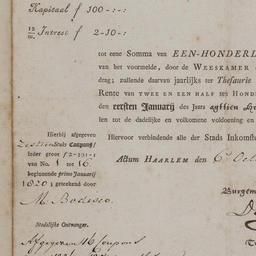 Kapitaal f 100-:-:
12/m. Intrest f 2-10-:
tot eene Somma van EEN-HONDERD
van het voormelde, door de WEESKAMER
drag; zullende daarvan jaarlijks ter Thesaurie
Rente van TWEE EN EEN HALF ten HOND
den eersten Januarij des Jaars agttien
len tot de dadelijke en volkomene voldoening en
Hiervoor verbindende alle der Stads Inkomst
Hierbij afgegeven
Zestien Stads Coupons
ieder groot f 2-10-:
van No. 1 tot 16.
beginnende primo Januarij
1820 ; geteekend door
M. Bodisco.
Actum HAARLEM den 6 Oct
Burgem
Stedelijke Ontvanger.
Afgegeven 16 Coupons